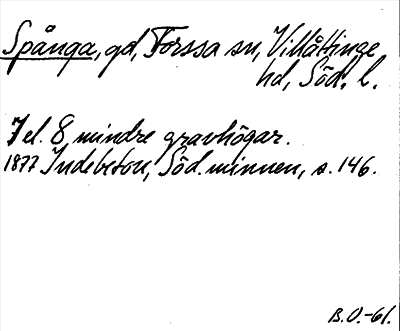 Spånga, gd, Forssa sn, Villåttinge
hd, Söd. l.
7 el. 8 mindre gravhögar.
1877 Indebetou, Söd. minnen, s. 146.
B.O.-61.